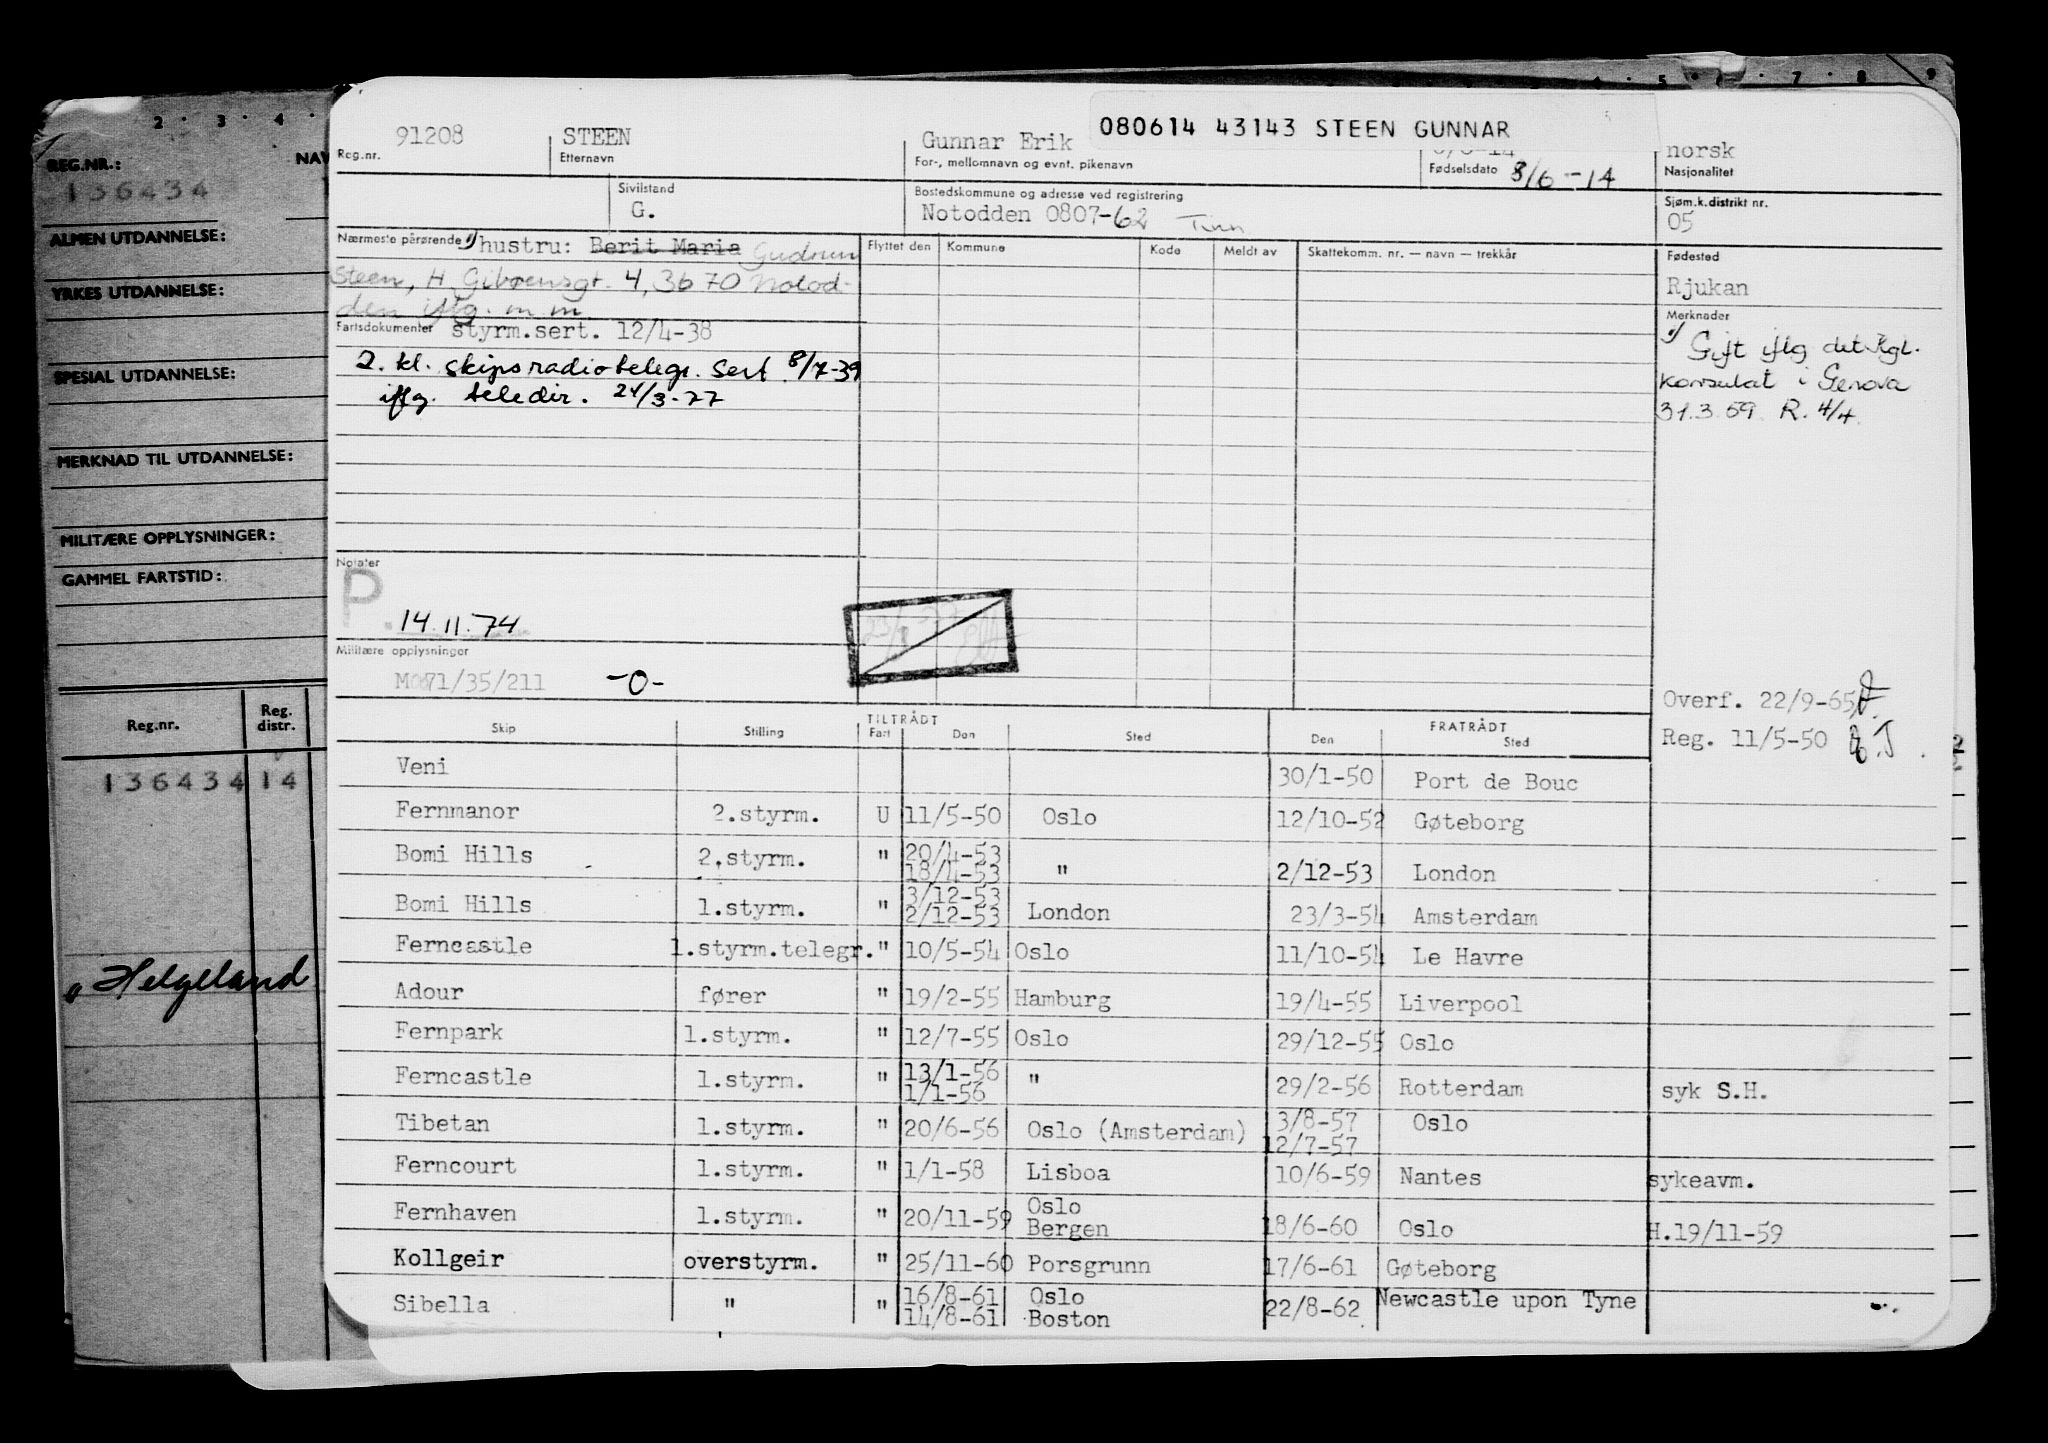 2 · 3 · 4 ·
5 · 6 · 7 · 8 · 9
REG.NR.: NAV
136434
ALMEN UTDANNELSE:
YRKES UTDANNELSE:
SPESIAL UTDANNELSE:
MERKNAD TIL UTDANNELSE:
MILITÆRE OPPLYSNINGER:
GAMMEL FARTSTID:
Reg.nr. Reg. distr.
136434 14
" Helgeland
080614 43143 STEEN GUNNAR
91208 STEEN Gunnar Erik norsk
Reg.nr. Etternavn For-, mellomnavn og evnt. pikenavn Fødselsdato 8/6-14 Nasjonalitet
Sivilstand Bostedskommune og adresse ved registrering Sjøm.k.distrikt nr.
G. Notodden 0807-62 Tinn 05
Nærmeste pårørende 1) hustru: Berit Maria Gudrun Flyttet den Kommune Kode Meldt av Skattekomm. nr. — navn — trekkår Fødested
Steen, H. Gibsensgt. 4, 3670 Notod- Rjukan
den iflg. m.m.
Merknader
Fartsdokumenter styrm.sert. 12/4-38
1) Gift iflg det Kgl.
2. kl. skipsradiotelegr. Sert. 8/7-39 konsulat i Genova
iflg. teledir. 24/3-77 31.3.69 R. 4/4.
Notater
P. 14.11.74
Militære opplysninger
71/35/211 -0-
Overf. 22/9-65
Reg. 11/5-50
TILTRÅDT FRATRÅDT
Skip Stilling Fart Den Sted Den Sted
Veni 30/1-50 Port de Bouc
Fernmanor 2.styrm. U 11/5-50 Oslo 12/10-52 Gøteborg
Bomi Hills 2.styrm. " 20/4-53 18/4-53 " 2/12-53 London
Bomi Hills 1.styrm. " 3/12-53 2/12-53 London 23/3-54 Amsterdam
Ferncastle 1.styrm.telegr. " 10/5-54 Oslo 11/10-54 Le Havre
Adour fører " 19/2-55 Hamburg 19/4-55 Liverpool
Fernpark 1.styrm. " 12/7-55 Oslo 29/12-55 Oslo
Ferncastle 1.styrm. " 13/1-56 1/1-56 " 29/2-56 Rotterdam syk S.H.
Tibetan 1.styrm. " 20/6-56 Oslo (Amsterdam) 3/8-57 12/7-57 Oslo
Ferncourt 1.styrm. " 1/1-58 Lisboa 10/6-59 Nantes sykeavm.
Fernhaven 1.styrm. " 20/11-59 Oslo Bergen 18/6-60 Oslo H.19/11-59
Kollgeir overstyrm. " 25/11-60 Porsgrunn 17/6-61 Gøteborg
Sibella " " 16/8-61 14/8-61 Oslo Boston 22/8-62 Newcastle upon Tyne